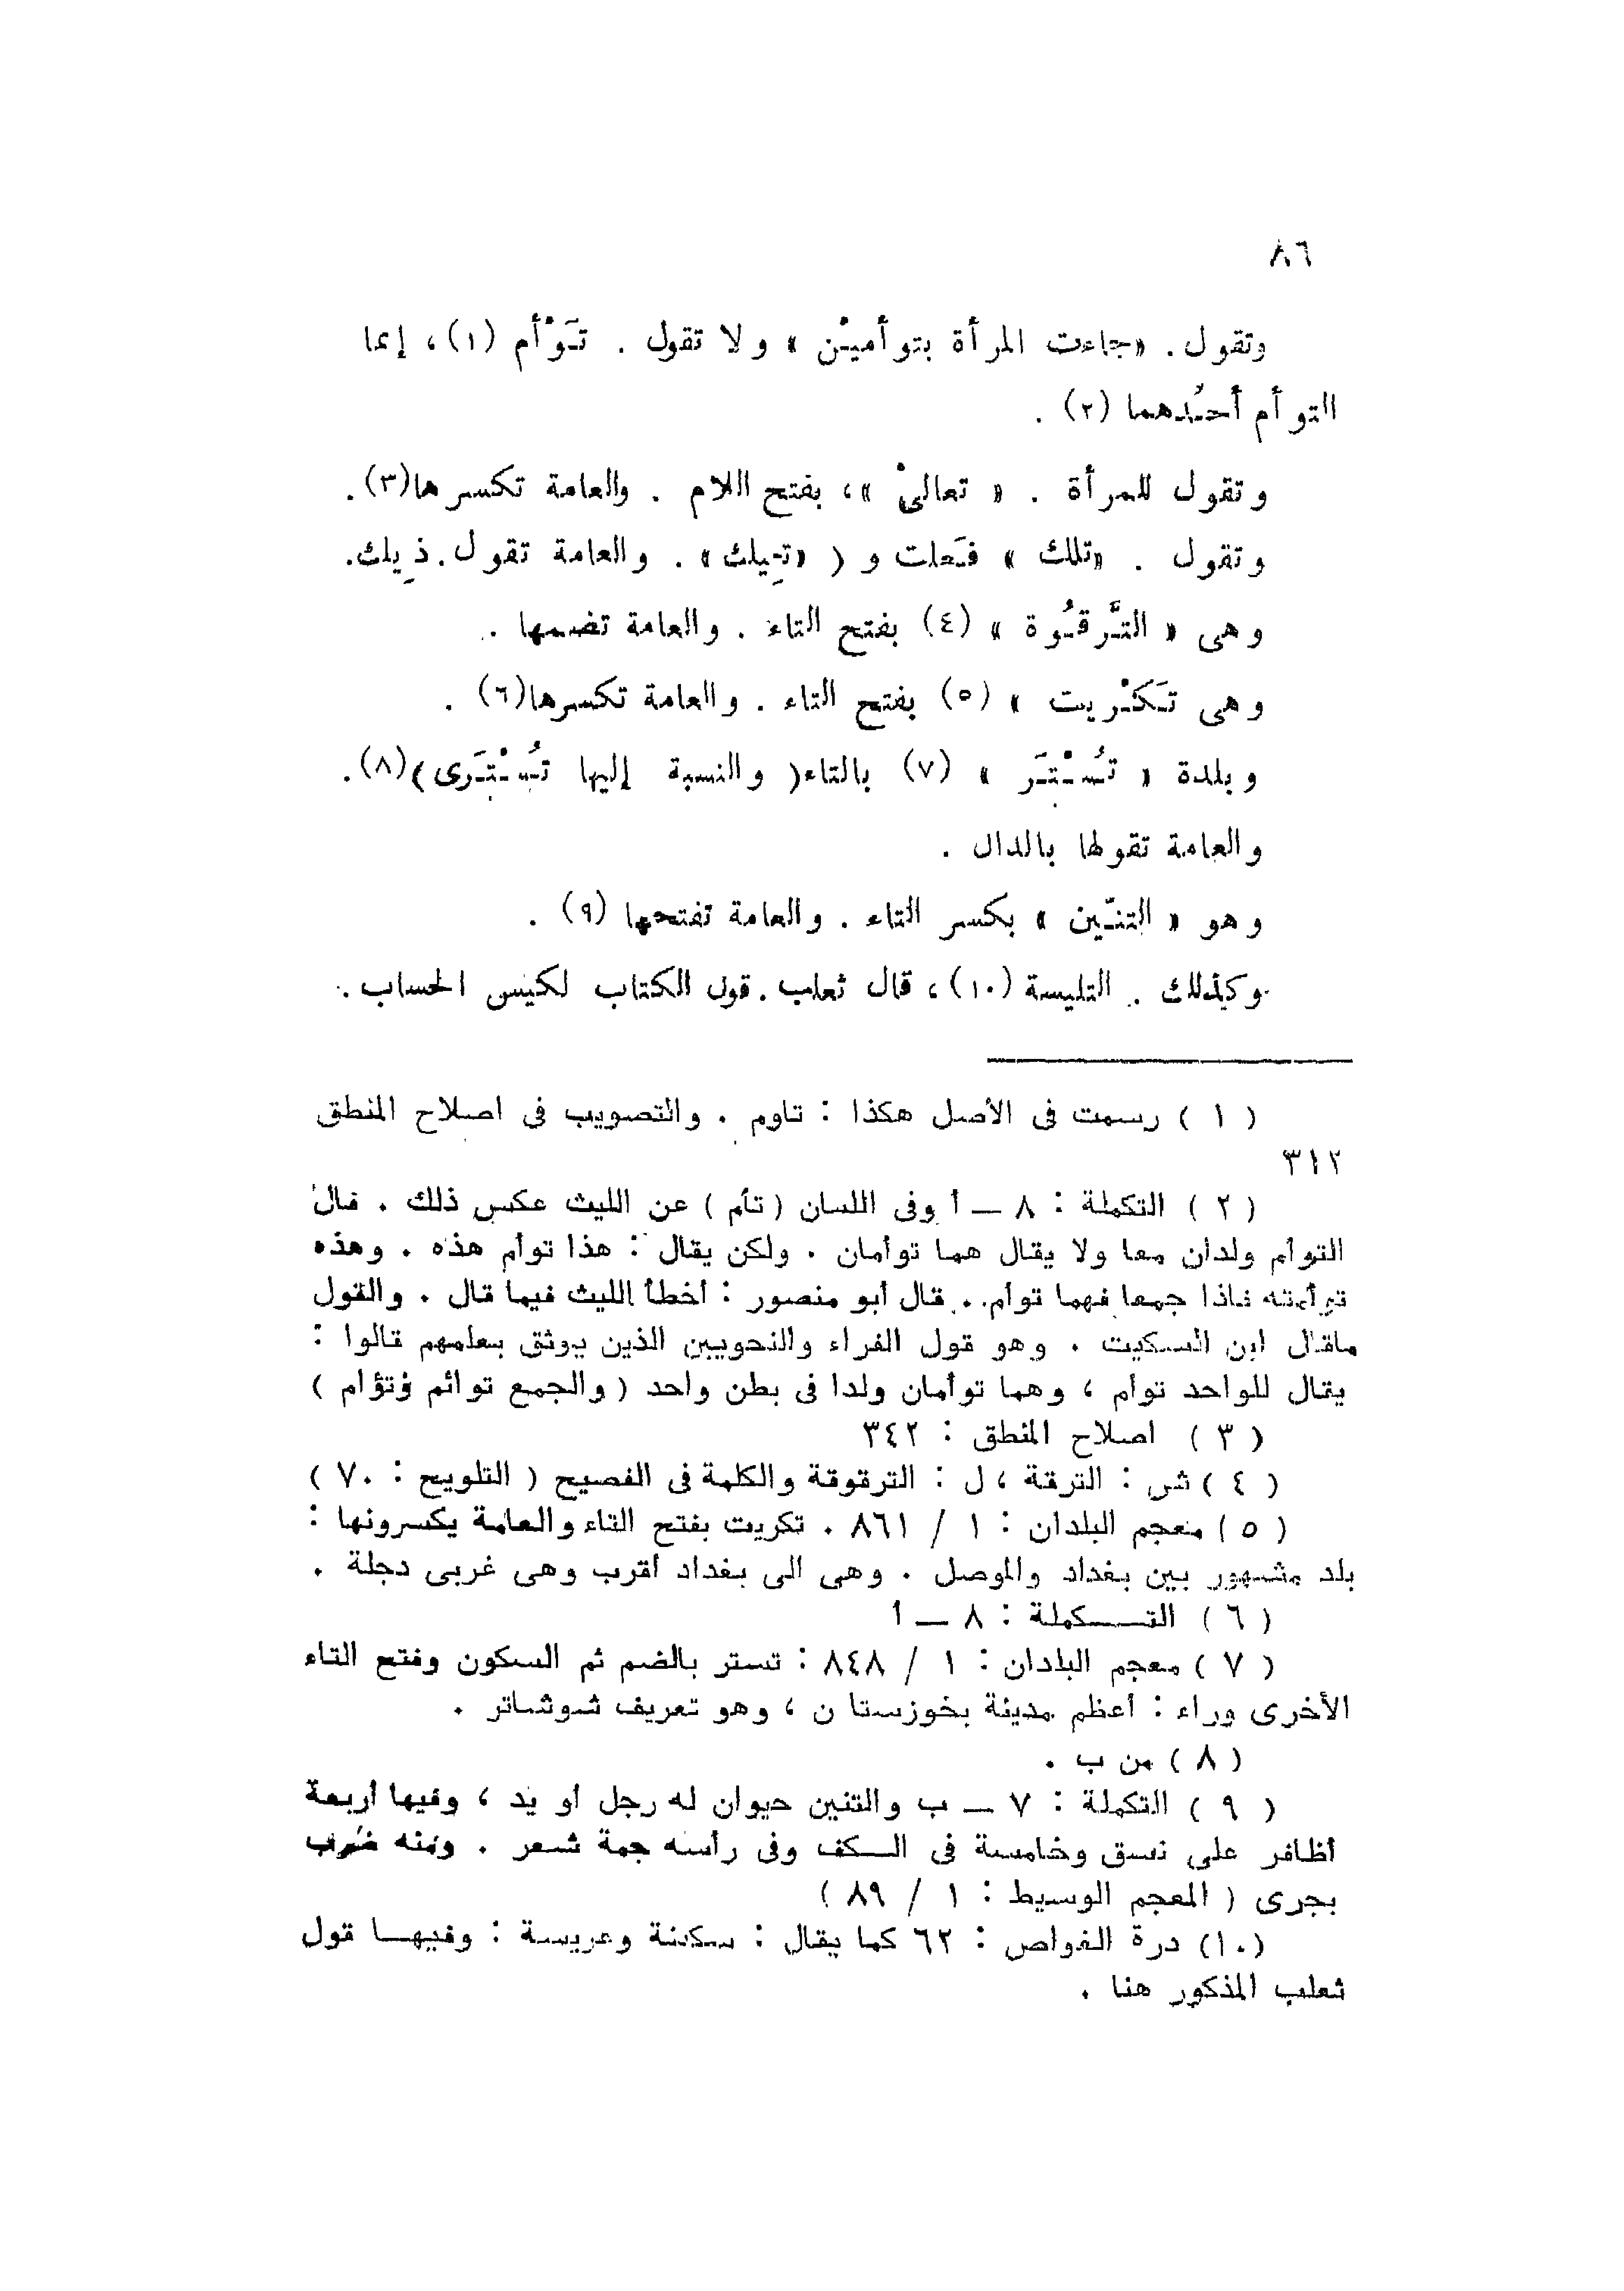 ٨٦
وتقول. «جاءت المرأة بتوأميْن» ولا تقول . تَوْأم (١)، إنما
التوأم أحدهما (٢) .
وتقول للمرأة . « تعالىْ »، بفتح اللام . والعامة تكسرها(٣).
وتقول . «تلك» فَعلت و ( «تِيلك» . والعامة تقول. ذِيلك.
وهى « التَّرقُوة » (٤) بفتح التاء . والعامة تضمها .
وهى تَكْريت » (٥) بفتح التاء . والعامة تكسرها(٦) .
وبلدة « تُسْتَر » (٧) بالتاء( والنسبة إليها تُسْتَرى)(٨).
والعامة تقولها بالدال .
وهو « التنّين » بكسر التاء . والعامة تفتحها (٩) .
وكذلك . التليسة (١٠)، قال ثعلب. قول الكتاب لكيس الحساب .
( ١ ) رسمت فى الأصل هكذا : تاوم . والتصويب فى اصلاح المنطق
٣١٢
( ٢ ) التكملة : ٨ — أ وفى اللسان ( تأم ) عن الليث عكس ذلك . قال
التوأم ولدان معا ولا يقال هما توأمان . ولكن يقال : هذا توأم هذه . وهذه
توأمته فاذا جمعا فهما توأم. . قال أبو منصور : أخطأ الليث فيما قال . والقول
ماقال ابن السكيت . وهو قول الفراء والنحويين الذين يوثق بعلمهم قالوا :
يقال للواحد توأم ، وهما توأمان ولدا فى بطن واحد ( والجمع توائم وتؤام )
( ٣ ) اصلاح المنطق : ٣٤٢
( ٤ ) ش : الترقة ، ل : الترقوقة والكلمة فى الفصيح ( التلويح : ٧٠ )
( ٥ ) معجم البلدان : ١ / ٨٦١ . تكريت بفتح التاء والعامة يكسرونها :
بلد مشهور بين بغداد والموصل . وهى الى بغداد أقرب وهى غربى دجلة .
( ٦ ) التـــكملة : ٨ — أ
( ٧ ) معجم البلدان : ١ / ٨٤٨ : تستر بالضم ثم السكون وفتح التاء
الأخرى وراء : أعظم مدينة بخوزستا ن ، وهو تعريف شوشاتر .
( ٨ ) من ب .
( ٩ ) التكملة : ٧ — ب والتنين حيوان له رجل أو يد ، وفيها أربعة
أظافر على نسق وخامسة فى الـكف وفى رأسه جمة شعر . ومنه ضرب
بجرى ( المعجم الوسيط : ١ / ٨٩ )
(١٠) درة الغواص : ٦٢ كما يقال : سكينة وعريسة : وفيهـا قول
ثعلب المذكور هنا .